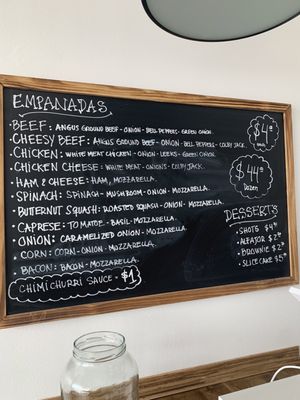 EMPANADAS
· BEEF: ANGUS GROUND BEEF - ONION - BELL PEPPERS - GREEN ONION.
· CHEESY BEEF: ANGUS GROUND BEEF - ONION - BELL PEPPERS - COLBY JACK.
· CHICKEN: WHITE MEAT CHICKEN - ONION - LEEKS - GREEN ONION.
· CHICKEN CHEESE: WHITE MEAT - ONIONS - COLBY JACK.
· HAM & CHEESE: HAM, MOZZARELLA.
· SPINACH: SPINACH - MUSHROOM - ONION - MOZZARELLA.
· BUTERNUT SQUASH: ROASTED SQUASH - ONION - MOZZARELLA.
· CAPRESE: TOMATOE - BASIL - MOZZARELLA.
· ONION: CARAMELIZED ONION - MOZZARELLA.
· CORN: CORN - ONION - MOZZARELLA.
· BACON: BACON - MOZZARELLA.
CHIMICHURRI SAUCE · $1
$4
$44
DOZEN
DESSERTS
· SHOTS $4
· ALFAJOR $2
· BROWNIE $2
· SLICE CAKE $5